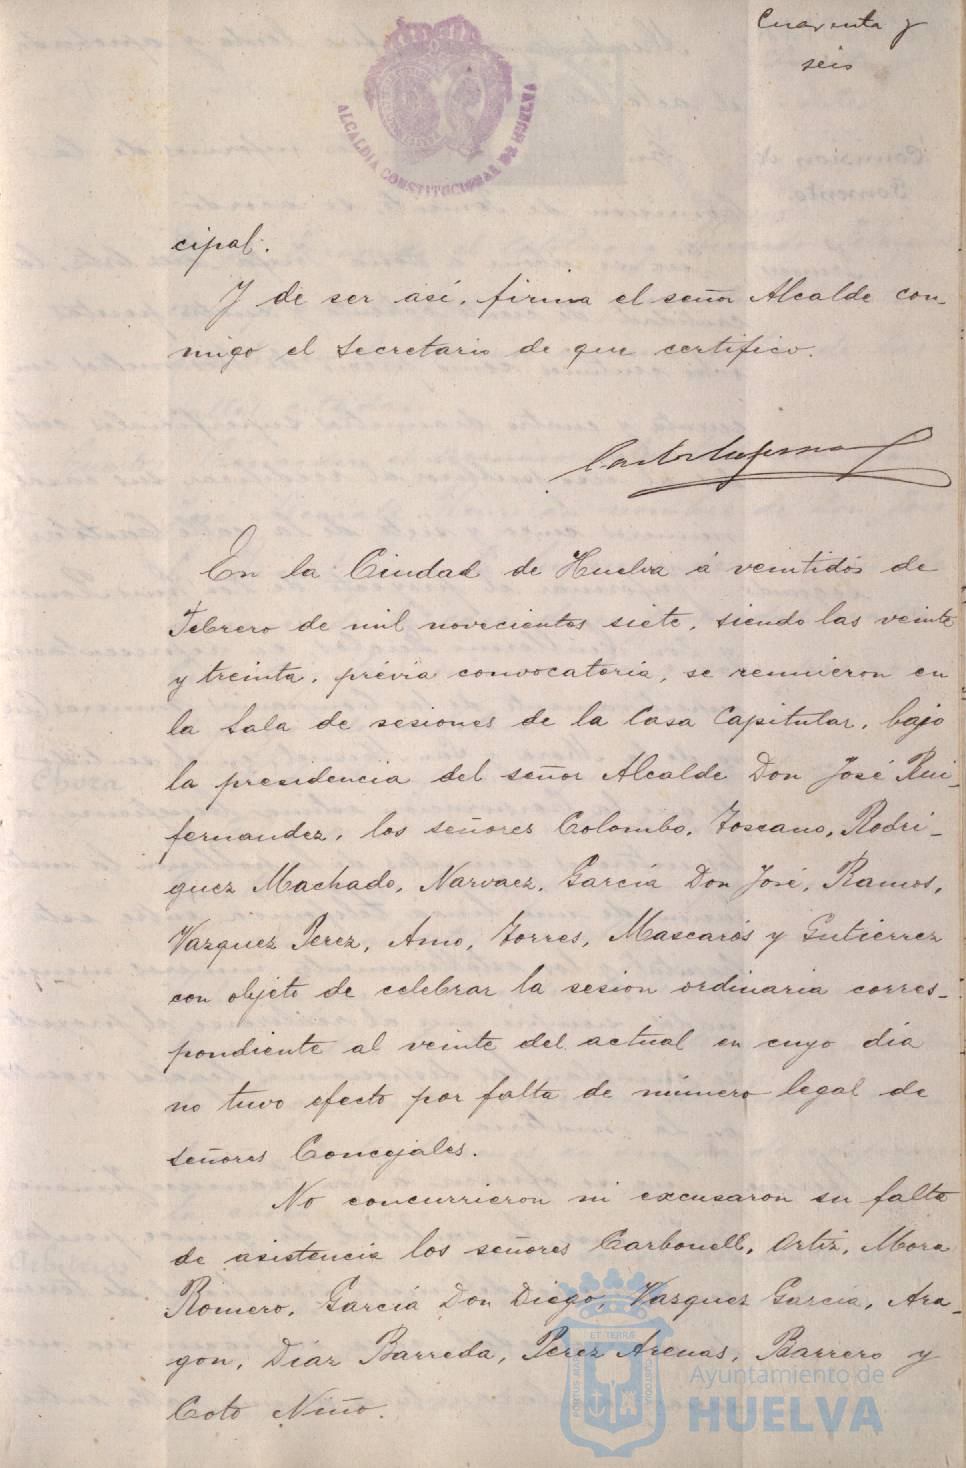 Cuarenta y
seis
ALCALDIA CONSTITUCIONAL DE HUELVA
cipal.
Y de ser así, firma el señor Alcalde con-
migo el Secretario de que certifico.
En la Ciudad de Huelva á veintidós de
Febrero de mil novecientos siete, siendo las veinte
y treinta, prévia convocatoria, se reunieron en
la Sala de sesiones de la Casa Capitular, bajo
la presidencia del señor Alcalde Don José Rui-
fernandez, los señores Colombo, Toscano, Rodri-
guez Machado, Narvaez, García Don José, Ramos,
Vazquez Perez, Amo, Torres, Mascarós y Gutierrez
con objeto de celebrar la sesion ordinaria corres-
pondiente al veinte del actual en cuyo dia
no tuvo efecto por falta de número legal de
señores Concejales.
No concurrieron ni excusaron su falta
de asistencia los señores Carbonell, Ortiz, Mora
Romero, García Don Diego, Vazquez García, Ara-
gon, Diaz Barreda, Perez Arenas, Barrero y
Coto Niño.
PORTUS MARIS ET TERRÆ CUSTODIA
Ayuntamiento de
HUELVA